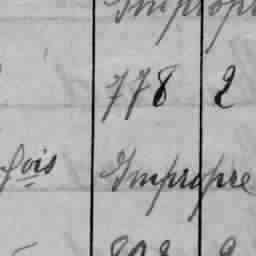 Impropre
778 2
fois Impropre
808 2